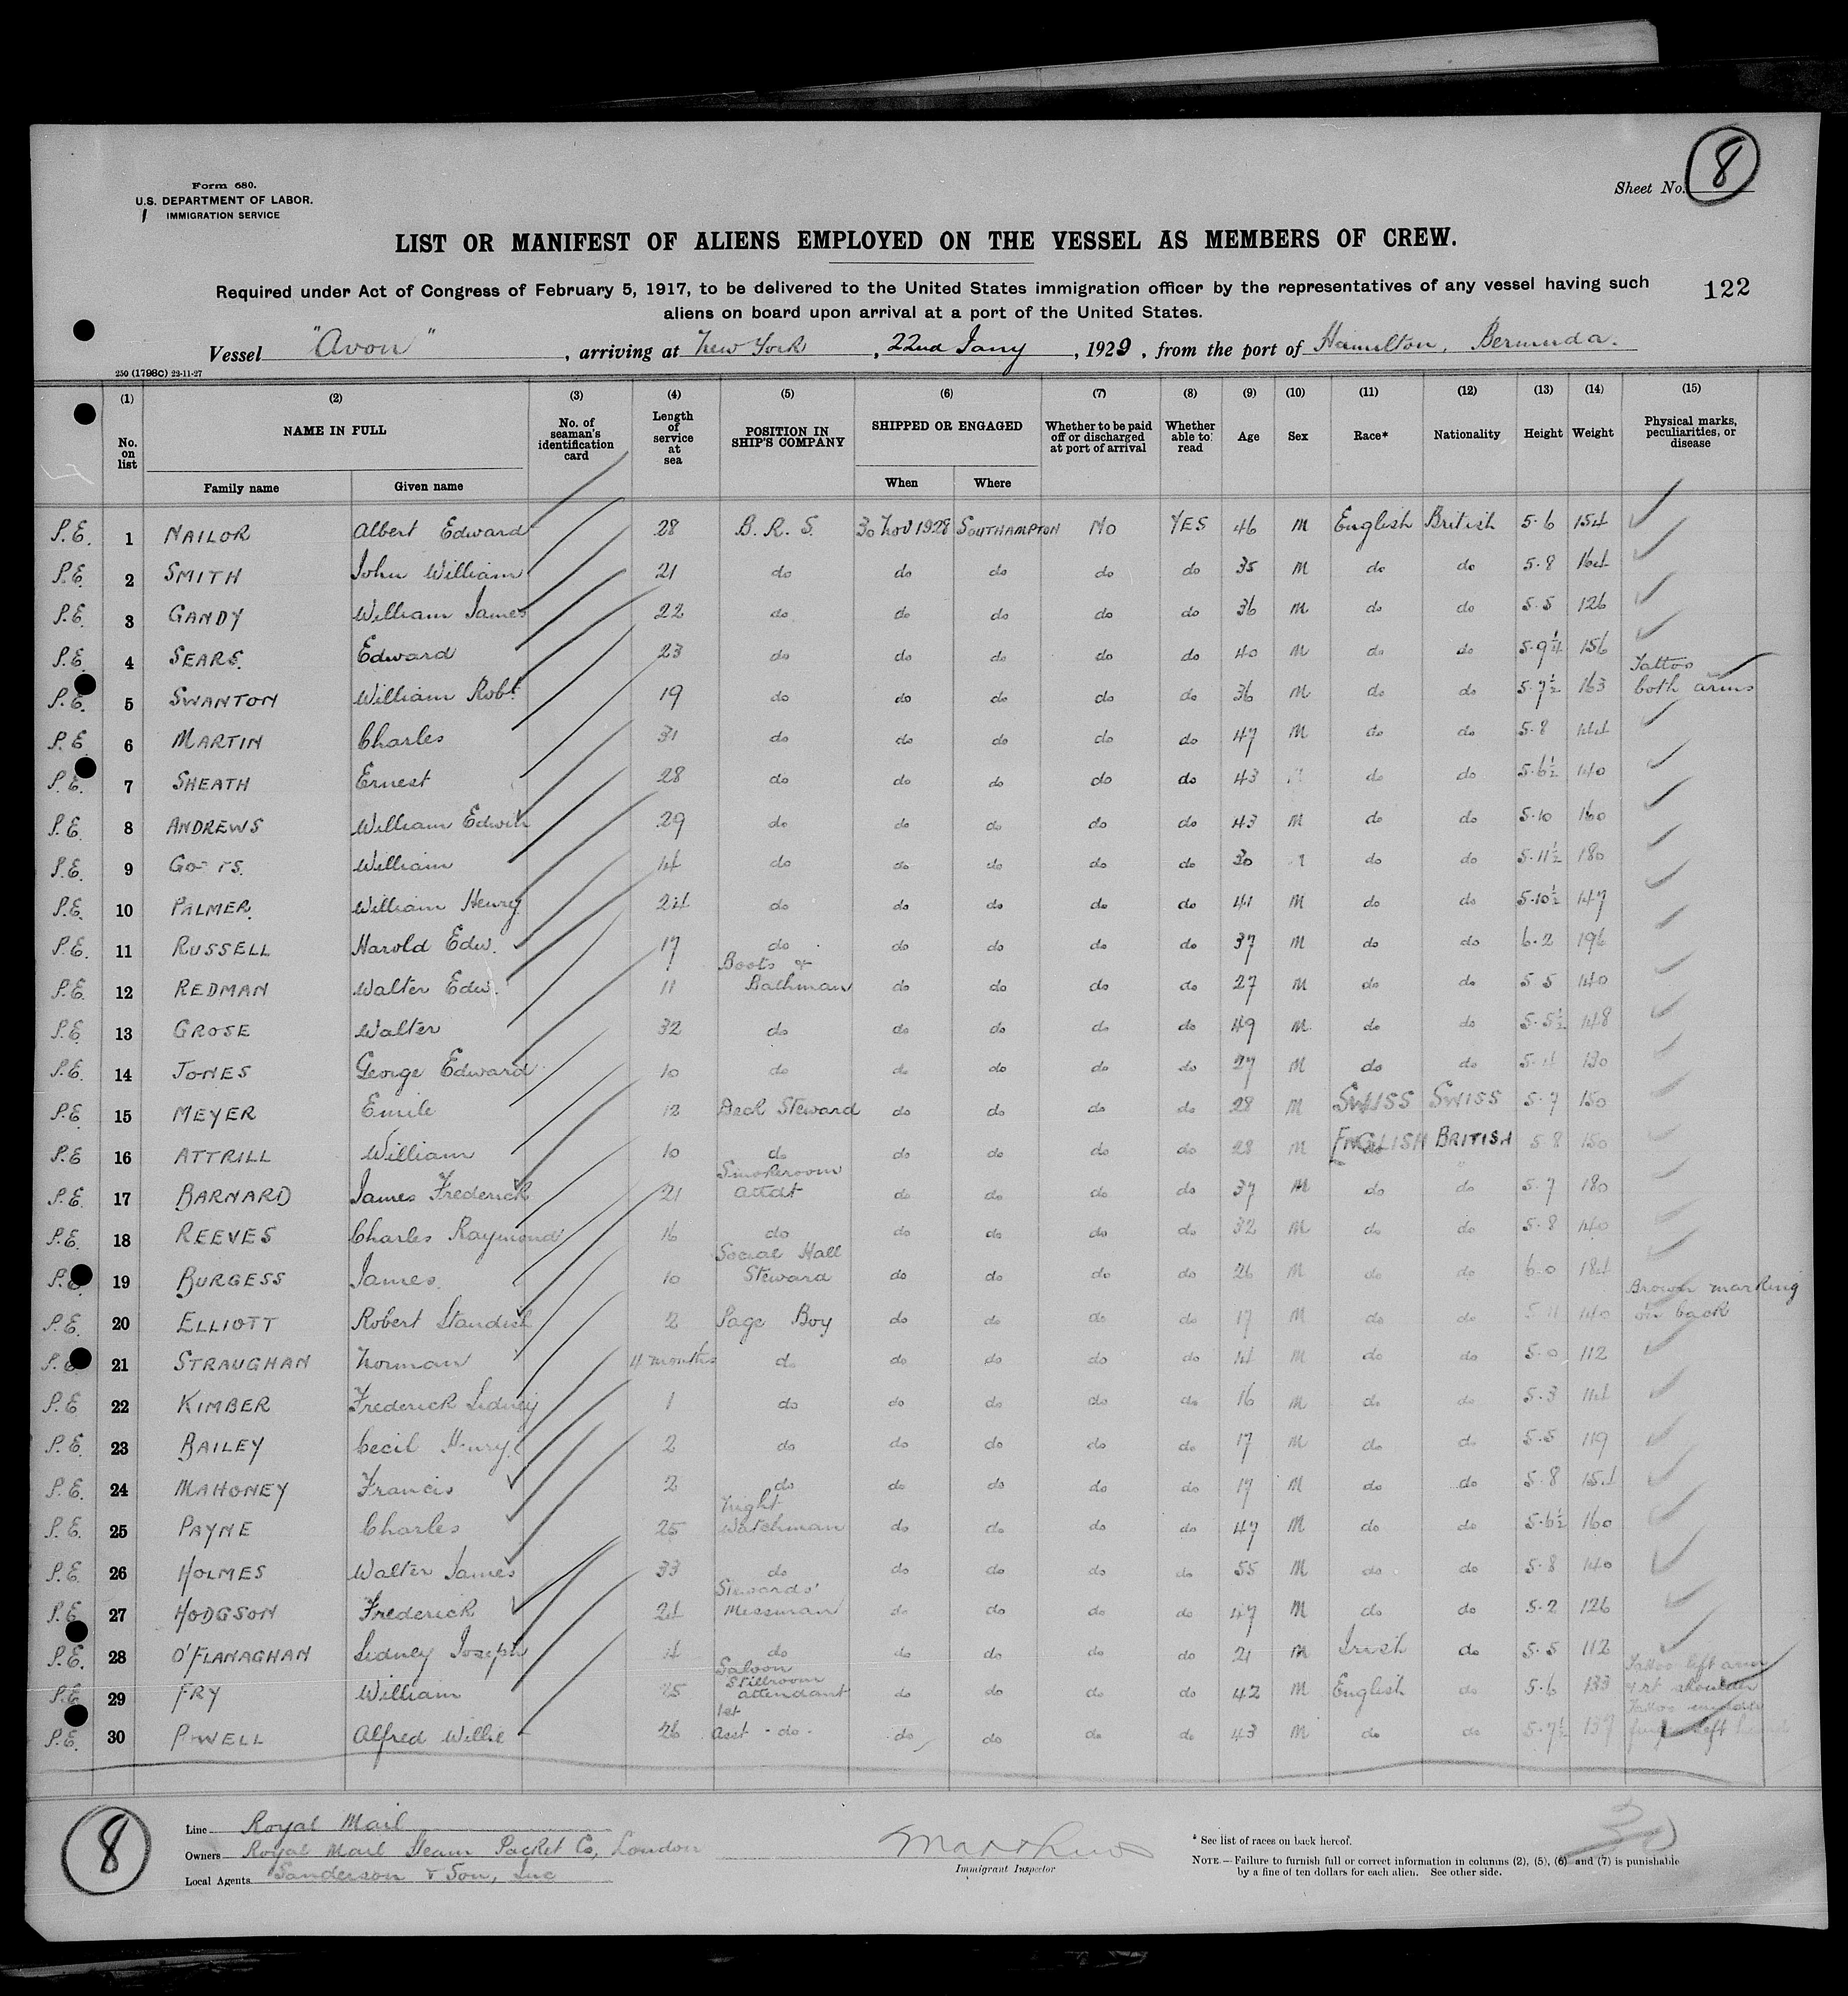 Form 680.
U.S. DEPARTMENT OF LABOR.
IMMIGRATION SERVICE
Sheet No. 8
LIST OR MANIFEST OF ALIENS EMPLOYED ON THE VESSEL AS MEMBERS OF CREW.
Required under Act of Congress of February 5, 1917, to be delivered to the United States immigration officer by the representatives of any vessel having such
aliens on board upon arrival at a port of the United States.
122
Vessel "Avon", arriving at New York, 22nd Jany, 1929, from the port of Hamilton, Bermuda.
250 (1798c) 22-11-27
(1) (2) (3) (4) (5) (6) (7) (8) (9) (10) (11) (12) (13) (14) (15)
No. on list NAME IN FULL No. of seaman's identification card Length of service at sea POSITION IN SHIP'S COMPANY SHIPPED OR ENGAGED Whether to be paid off or discharged at port of arrival Whether able to read Age Sex Race* Nationality Height Weight Physical marks, peculiarities, or disease
Family name Given name When Where
P.E. 1 NAILOR Albert Edward 28 B.R.S. 30 Nov 1928 SOUTHAMPTON NO YES 46 M English British 5.6 154
P.E. 2 SMITH John William 21 do do do do do 35 M do do 5.8 164
P.E. 3 GANDY William James 22 do do do do do 36 M do do 5.5 126
P.E. 4 SEARS. Edward 23 do do do do do 40 M do do 5.9¼ 156
P.E. 5 SWANTON William Robt. 19 do do do do do 36 M do do 5.7½ 163 Tattoo both arms
P.E. 6 MARTIN Charles 31 do do do do do 47 M do do 5.8 144
P.E. 7 SHEATH Ernest 28 do do do do do 43 do do 5.6½ 140
P.E. 8 ANDREWS William Edwin 29 do do do do do 43 M do do 5.10 160
P.E. 9 William 14 do do do do do 30 do do 5.11½ 180
P.E. 10 PALMER. William Henry 24 do do do do do 41 M do do 5.10½ 147
P.E. 11 RUSSELL Harold Edw. 17 do do do do do 37 M do do 6.2 196
P.E. 12 REDMAN Walter Edw. 11 Boots & Bathman do do do do 27 M do do 5 5 140
P.E. 13 GROSE Walter 32 do do do do do 49 M do do 5.5½ 148
P.E. 14 JONES George Edward 10 do do do do do 27 M do do 130
P.E. 15 MEYER Emile 12 Deck Steward do do do do 28 M SWISS SWISS 5.7 150
P.E 16 ATTRILL William 10 do do do do do 28 M ENGLISH BRITISH 5 8 150
P.E. 17 BARNARD James Frederick 21 Smokeroom attdt do do do do 37 M do do 5.7 180
P.E. 18 REEVES Charles Raymond 16 do do do do do 32 M do do 5.8 140
P.E. 19 BURGESS James. 10 Social Hall Steward do do do do 26 M do do 6.0 184
P.E. 20 ELLIOTT Robert Standish 2 Page Boy do do do do 17 M do do 5 11 140 Brown marking on back
P.E. 21 STRAUGHAN Norman 4 months do do do do do M do do 5.0 112
P.E 22 KIMBER Frederick Sidney 1 do do do do do 16 M do do 5.3 114
P.E. 23 BAILEY Cecil Henry 2 do do do do do 17 M do do 5.5 119
P.E. 24 MAHONEY Francis 2 do do do do do 17 M do do 5.8 154
P.E. 25 PAYNE Charles 25 Night Watchman do do do do 47 M do do 5.6½ 160
P.E. 26 HOLMES Walter James 33 do do do do do 55 M do do 5.8 140
P.E 27 HODGSON Frederick 24 Stewards' Messman do do do do 47 M do do 5.2 126
P.E. 28 O'FLANAGHAN Sidney Joseph 4 do do do do do 21 M Irish do 5.5 112
P.E 29 FRY William 25 Saloon Stillroom attendant do do do do 42 M English do 5.6 133 Tattoo left arm & rt shoulder
P.E. 30 POWELL Alfred Willie 26 1st Asst. do. do do do do 43 M do do 5.7½ 139 Tattoo left
8
Line Royal Mail
Owners Royal Mail Steam Packet Co, London
Local Agents Sanderson & Son, Inc
Matthews
Immigrant Inspector
* See list of races on back hereof.
NOTE.—Failure to furnish full or correct information in columns (2), (5), (6) and (7) is punishable
by a fine of ten dollars for each alien. See other side.
30